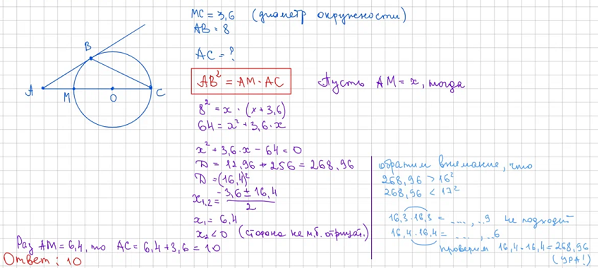 MC = 3,6 (диаметр окружности)
AB = 8
AC = ?
AB² = AM · AC
Пусть AM = x, тогда
8² = x · (x + 3,6)
64 = x² + 3,6 · x
x² + 3,6 · x − 64 = 0
D = 12,96 + 256 = 268,96
D = (16,4)²
x₁,₂ = (−3,6 ± 16,4) / 2
x₁ = 6,4
x₂ < 0 (сторона не м.б. отрицат.)
Раз AM = 6,4, то AC = 6,4 + 3,6 = 10
Ответ: 10
обратим внимание, что
268,96 > 16²
268,96 < 17²
16,3 · 16,3 = ... , .. 9 не подходит
16,4 · 16,4 = ... , .. 6
проверим 16,4 · 16,4 = 268,96
(УРА!)
A
B
M
O
C